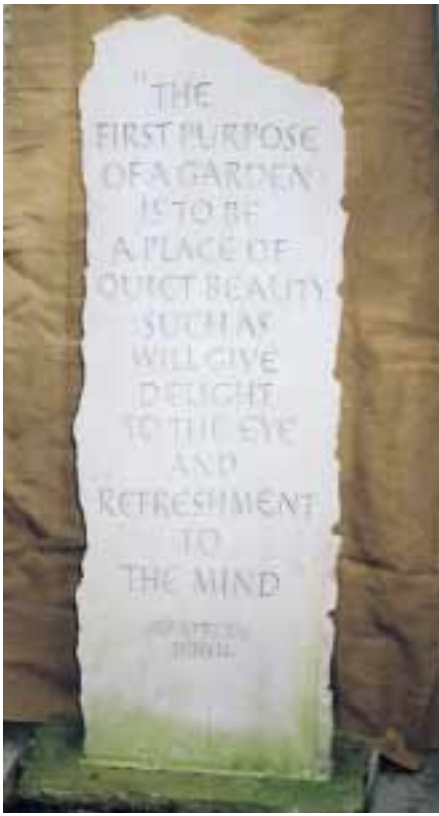 "THE
FIRST PURPOSE
OF A GARDEN
IS TO BE
A PLACE OF
QUIET BEAUTY
SUCH AS
WILL GIVE
DELIGHT
TO THE EYE
AND
REFRESHMENT
TO
THE MIND